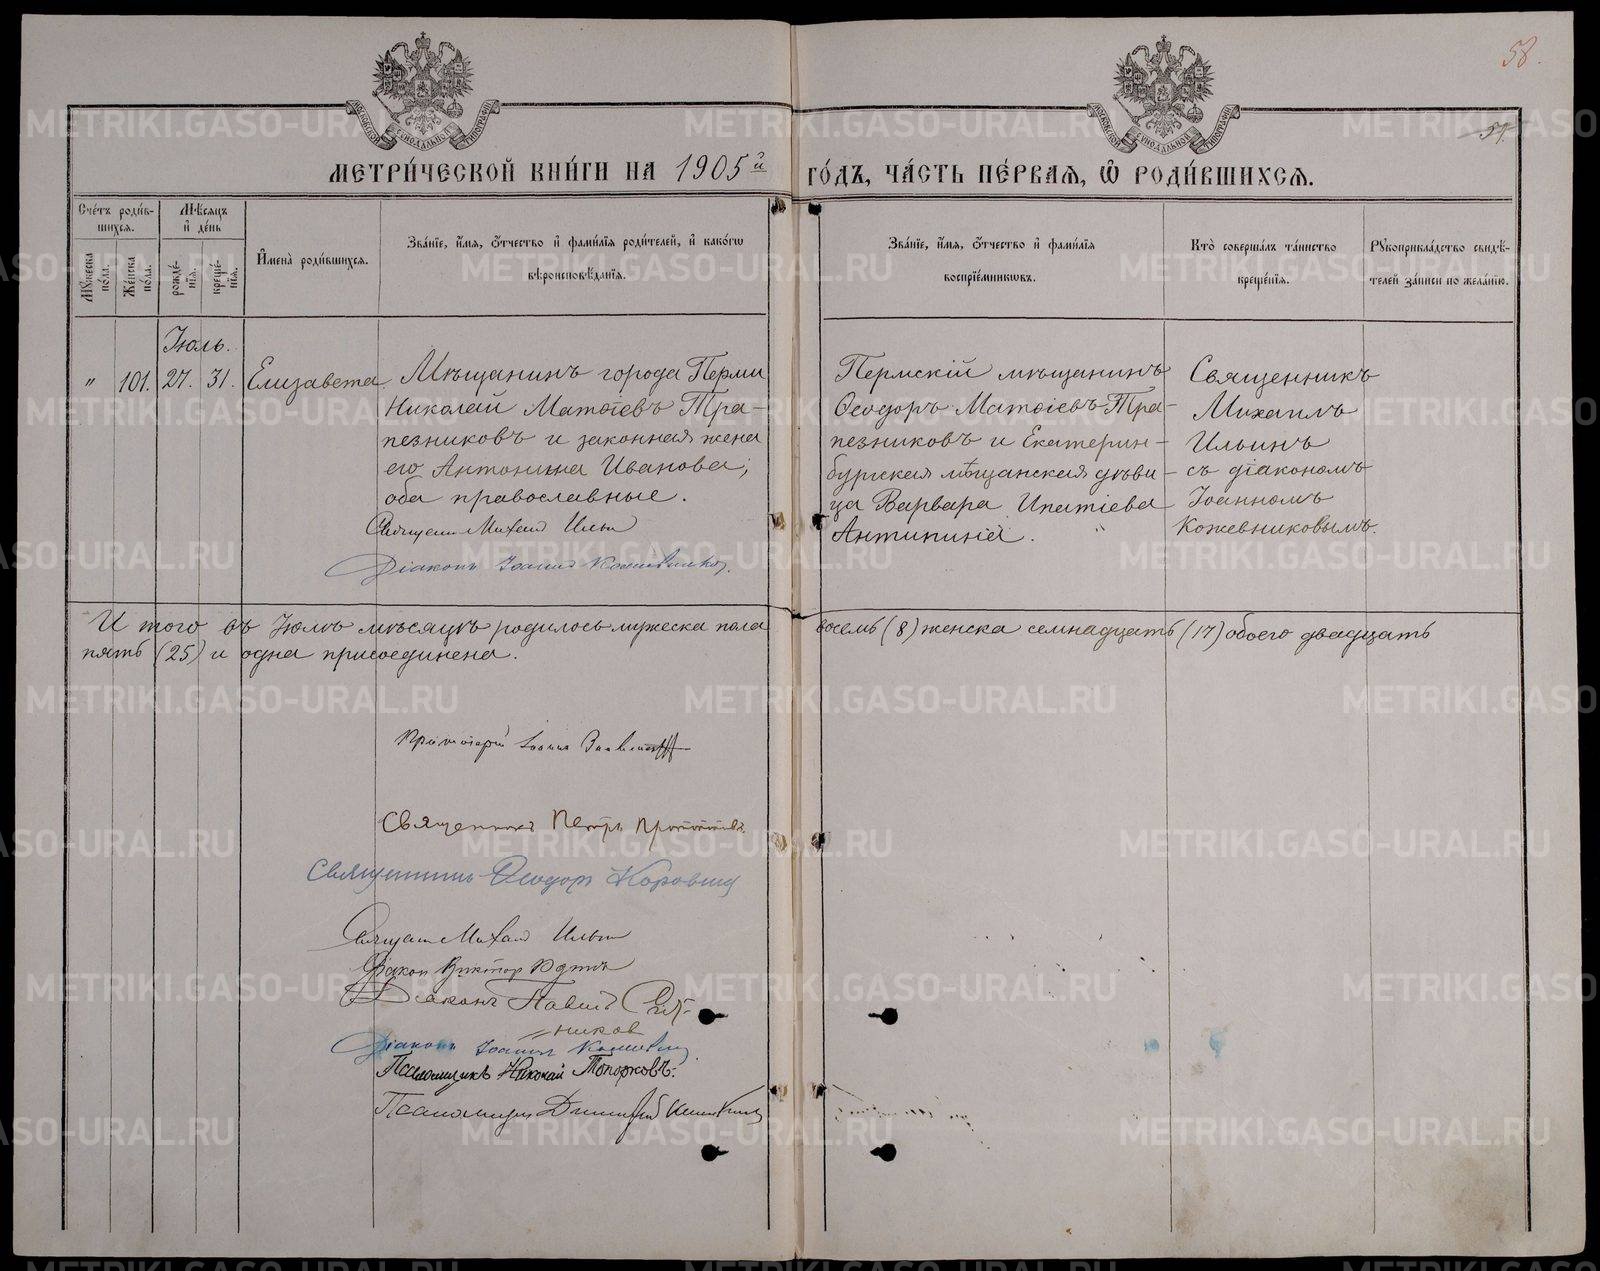 58.
57.
МЕТРИ́ЧЕСКОЙ КНИ́ГИ НА 1905й ГО́ДЪ, ЧА́СТЬ ПЕ́РВАЯ, Ѡ҆ РОДИ́ВШИХСЯ.
МОСКОВСКОЙ СѴНОДАЛЬНОЙ ТИПОГРАФІИ
МОСКОВСКОЙ СѴНОДАЛЬНОЙ ТИПОГРАФІИ
Сче́тъ роди́в-
шихся.
Мꙋ́жеска по́ла.
Же́нска по́ла.
Мѣ́сяцъ и҆ де́нь
рожде́-нїѧ.
креще́-нїѧ.
И҆мена̀ роди́вшихся.
Зва́нїе, и҆́мя, ѻ҆́тчество и҆ фами́лїя роди́телей, и҆ како́гѡ
вѣроисповѣ́данїя.
Зва́нїе, и҆́мя, ѻ҆́тчество и҆ фами́лїя
воспрїе́мникѡвъ.
Кто̀ соверша́лъ та́инство
креще́нїя.
Рꙋкоприкла́дство свидѣ́-
телей за́писи по жела́нїю.
Іюль.
" 101. 27. 31. Елизавета
Мѣщанинъ города Перми
Николай Матѳіевъ Тра-
пезниковъ и законная жена
его Антонина Иванова;
оба православные.
Священ Михаил Ильин
Діаконъ Іоаннъ Кожевников.
Пермскій мѣщанинъ
Ѳеодоръ Матѳіевъ Тра-
пезниковъ и Екатерин-
бургская мѣщанская дѣви-
ца Варвара Ипатіева
Антипиній.
Священникъ
Михаилъ
Ильинъ
съ діакономъ
Іоанномъ
Кожевниковымъ.
И того въ Іюлѣ мѣсяцѣ родилось мужеска пола восемь (8) женска семнадцать (17) обоего двадцать
пять (25) и одна присоединена.
Протоіерей Іоаннъ
Священникъ Петръ
Священникъ Ѳеодоръ Коровин
Священ Михаил Ильин
Діакон Виктор
Діаконъ Павелъ
ников
Діаконъ Іоаннъ Кожевник.
Псаломщикъ Николай Топорковъ.
Псаломщик Димитрій
METRIKI.GASO-URAL.RU